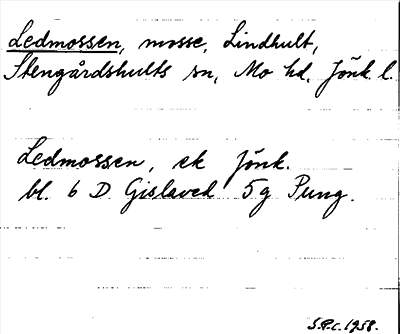 Ledmossen, mosse, Lindhult,
Stengårdshults sn, Mo hd. Jönk. l.
Ledmossen, ek Jönk.
bl. 6 D Gislaved 5g Pung.
S.P.c. 1958.